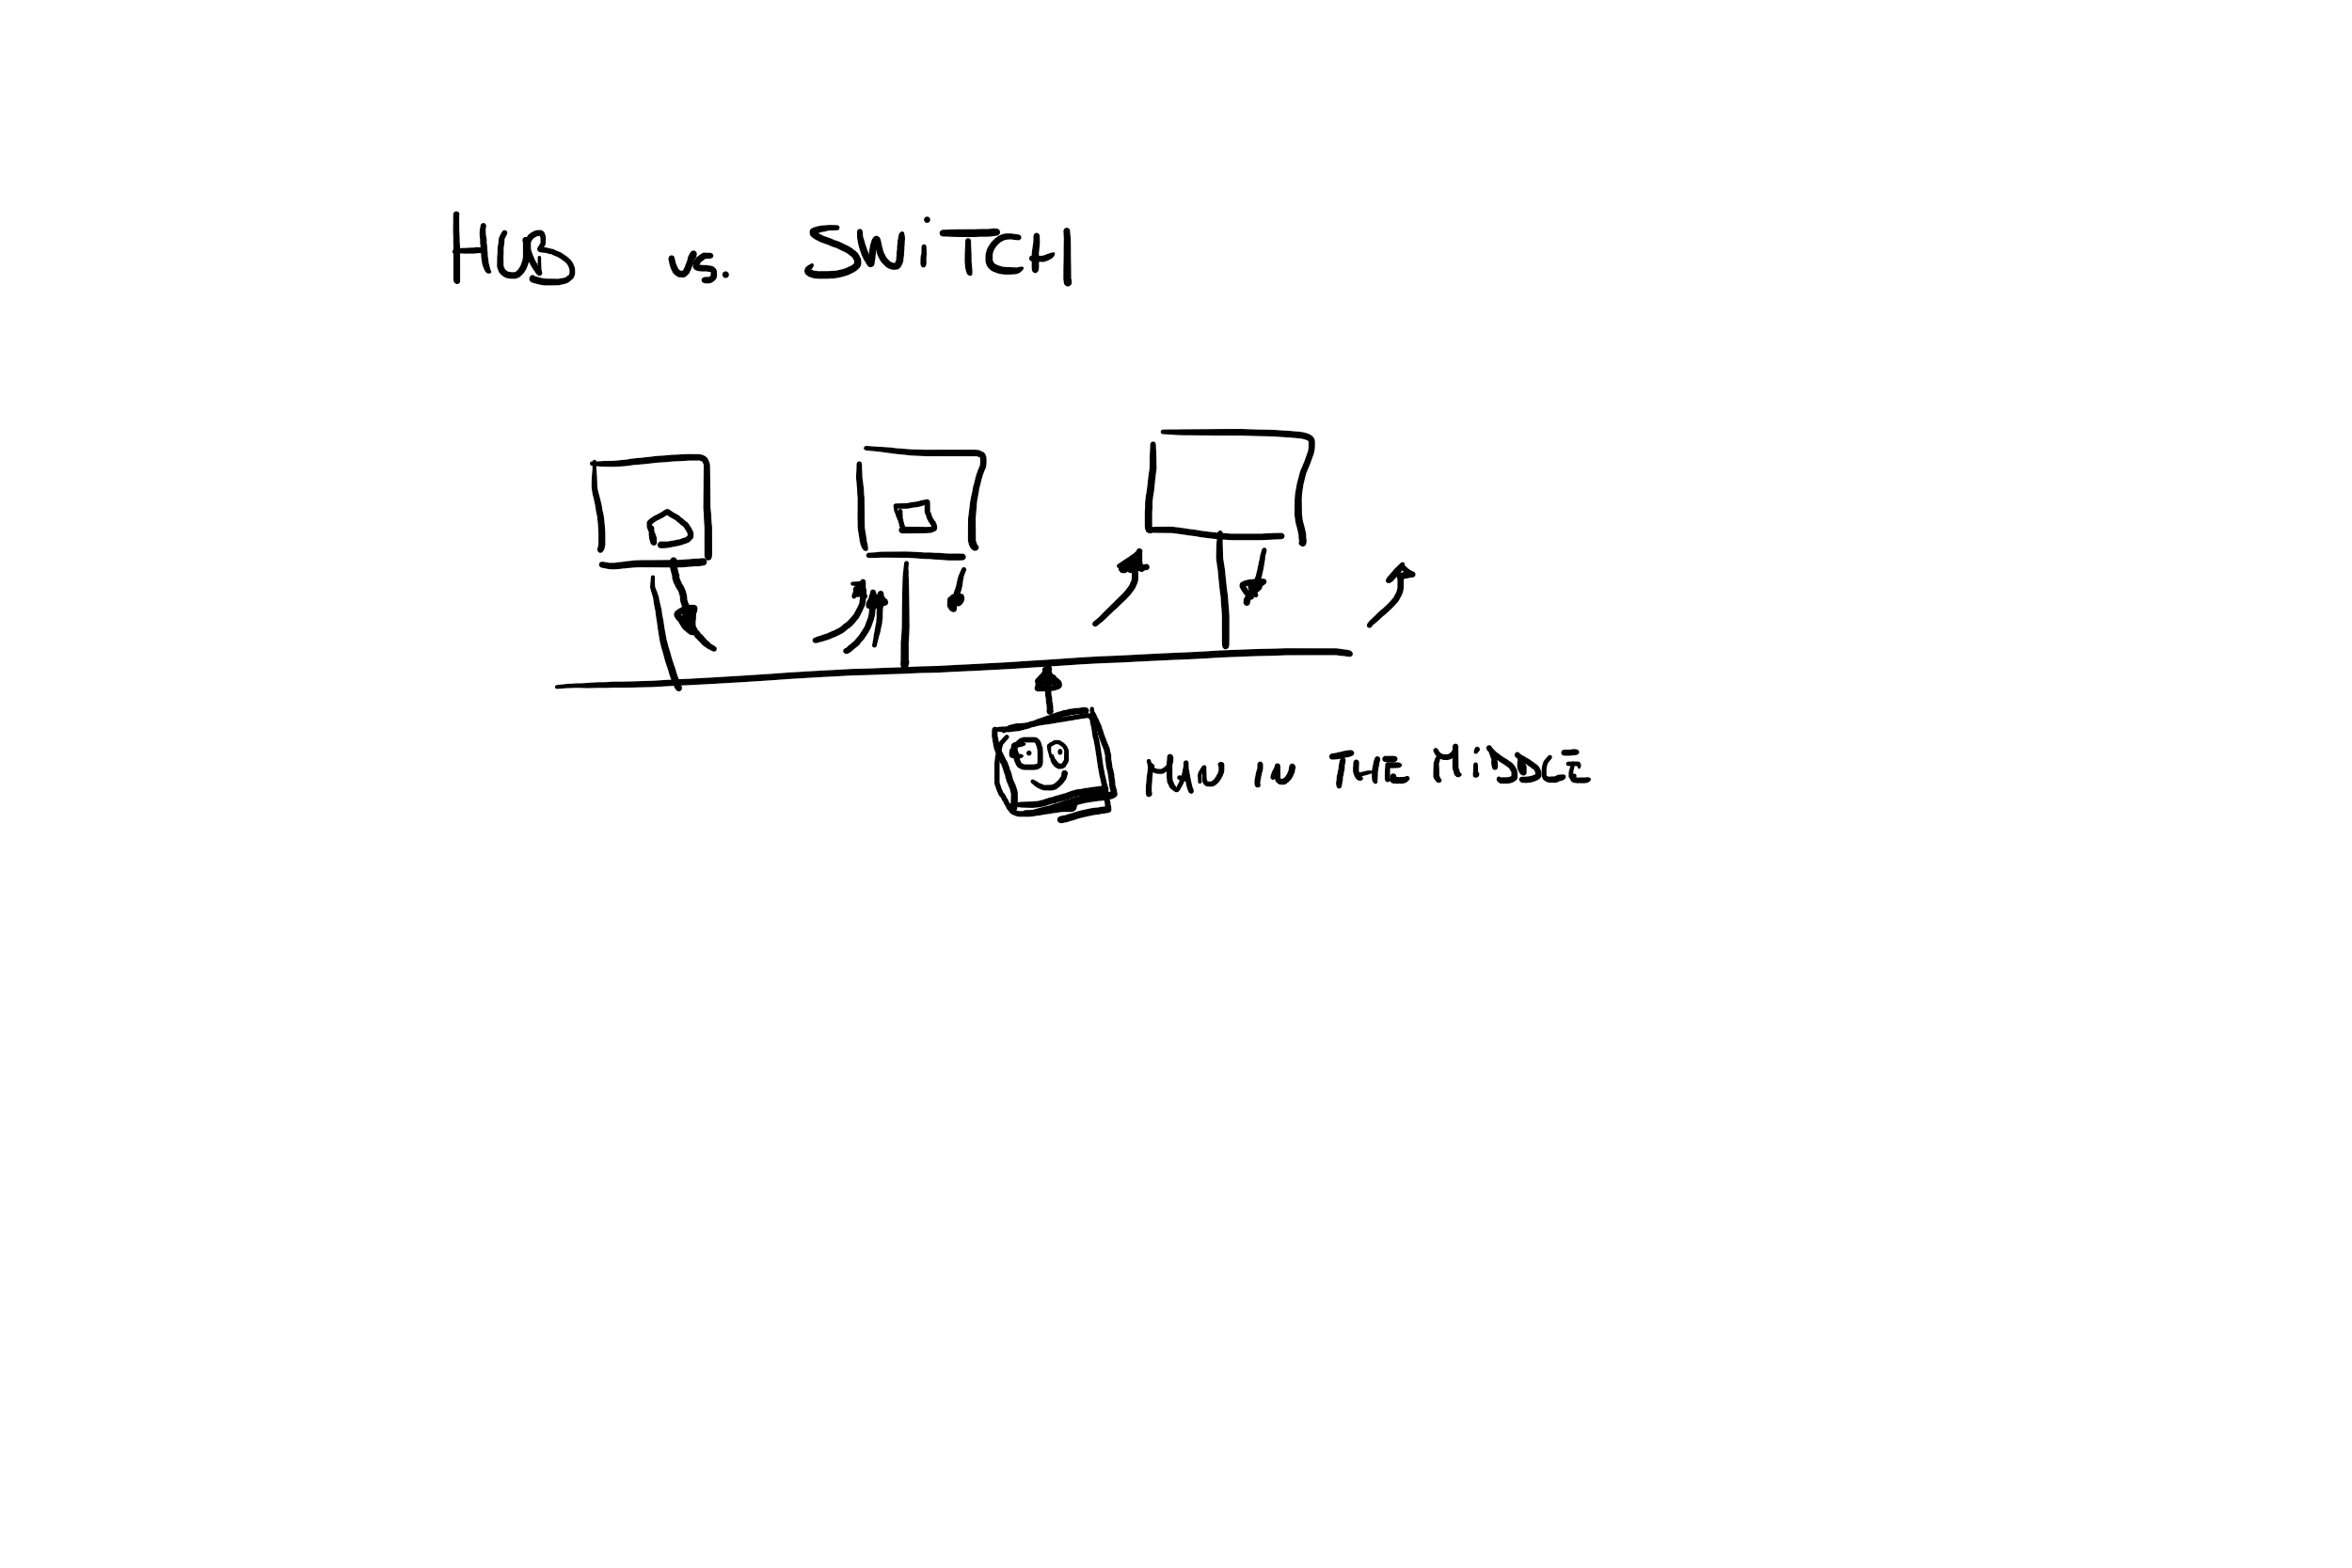 HUB vs. SWiTCH
MAN IN THE MiDDLE